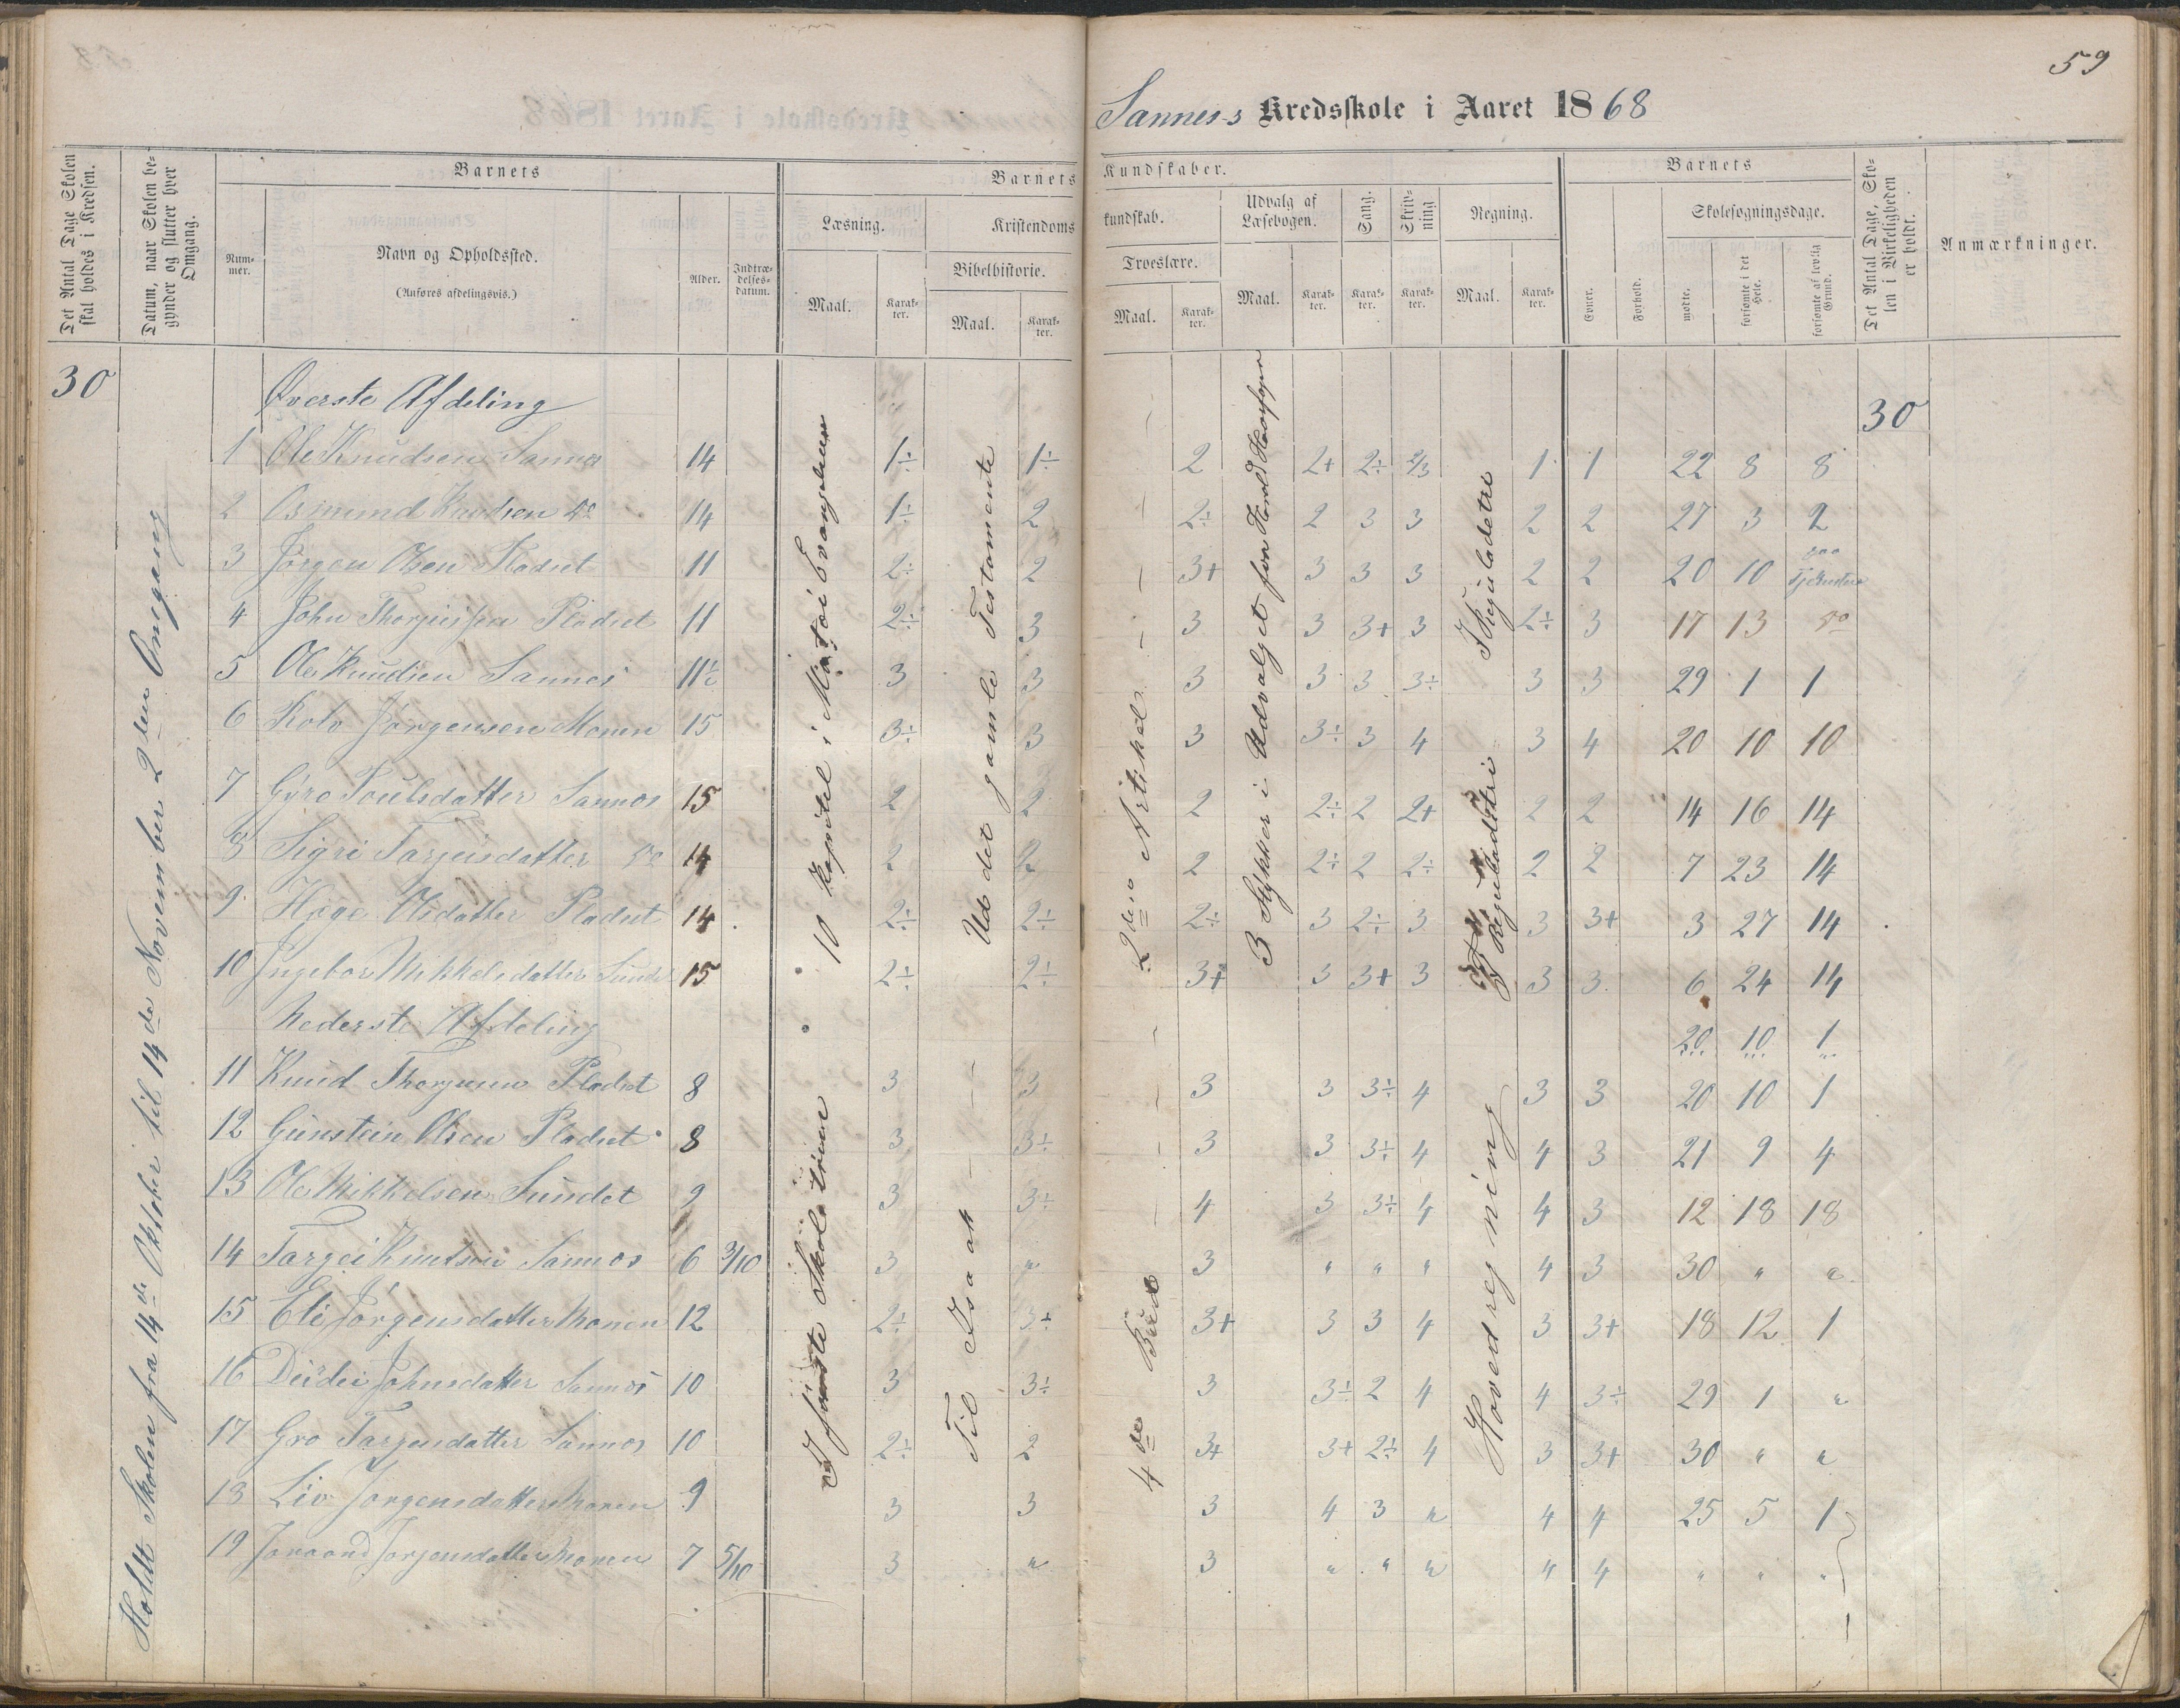 59
Sannes s Kredsskole i Aaret 1868
Det Antal Dage Skolen skal holdes i Kredsen.
Datum, naar Skolen begynder og slutter hver Omgang.
Barnets
Nummer.
Navn og Opholdssted.
(Anføres afdelingsvis.)
Alder.
Indtrædelsesdatum.
Barnets Kundskaber.
Læsning.
Maal.
Karakter.
Kristendomskundskab.
Bibelhistorie.
Maal.
Karakter.
Troeslære.
Maal.
Karakter.
Udvalg af Læsebogen.
Maal.
Karakter.
Sang.
Karakter.
Skrivning
Karakter.
Regning.
Maal.
Karakter.
Barnets
Evner.
Forhold.
Skolesøgningsdage.
mødte.
forsømte i det Hele.
forsømte af lovlig Grund.
Det Antal Dage, Skolen i Virkeligheden er holdt.
Anmærkninger.
30
Holdt Skolen fra 14de Oktober til 14de November 2den Omgang
30
Øverste Afdeling
1 Ole Knudsen Sannes 14 1÷ 1÷ 2 2+ 2÷ 2/3 1 1 22 8 8
2 Osmund Knudsen do 14 1÷ 2 2÷ 2 3 3 2 2 27 3 2
3 Jørgen Olsen Pladset 11 2÷ 2 3+ 3 3 3 2 2 20 10 paa Tjeneste
4 John Thorjussen Pladset 11 2÷ 3 3 3 3+ 3 2÷ 3 17 13 do
5 Ole Knudsen Sannes 11½ 3 3 3 3 3 3÷ 3 3 29 1 1
6 Rolv Jørgensen Monen 15 3÷ 3 3 3÷ 3 4 3 4 20 10 10
7 Gyro Toulsdatter Sannes 15 2 2 2 2÷ 2 2+ 2 2 14 16 14
8 Sigri Tarjeisdatter do 14 2 2 2 2÷ 2 2÷ 2 2 7 23 14
9 Hæge Olsdatter Pladset 14 2÷ 2÷ 2÷ 3 2÷ 3 3 3+ 3 27 14
10 Ingebor Mikkelsdatter Sundet 15 2÷ 2÷ 3+ 3 3+ 3 3 3 6 24 14
10 Kapitel i Matæi Evangelium
Ud det gamle Testamente
2den Artikel
3 Stykker i Udvalget fra Harald Haarfagre
I Reguladetri
I Reguladetri
Nederste Afdeling
20 10 1
11 Knud Thorjussen Pladset 8 3 3 3 3 3÷ 4 3 3 20 10 1
12 Gunstein Olsen Pladset 8 3 3÷ 3 3 3÷ 4 4 3 21 9 4
13 Ole Mikkelsen Sundet 9 3 3÷ 4 3 3÷ 4 4 3 12 18 18
14 Targei Knutsen Sannes 6 3/10 3 " 3 " " " 4 3 30 " "
15 Eli Jørgensdatter Monen 12 2÷ 3÷ 3+ 3 3 4 3 3+ 18 12 1
16 Deidei Johnsdatter Sannes 10 3 3÷ 3 3÷ 2 4 4 3÷ 29 1 "
17 Gro Tarjeisdatter Sannes 10 2÷ 2 3+ 3+ 2÷ 4 3 3+ 30 " "
18 Liv Jørgensdatter Monen 9 3 3 3 4 3 " 4 4 25 5 1
19 Joraand Jorgensdatter Monen 7 5/10 3 " 3 " " " " 4 " " "
I første Skoletrin
Til Isaak
4de Bud
Hovedregning